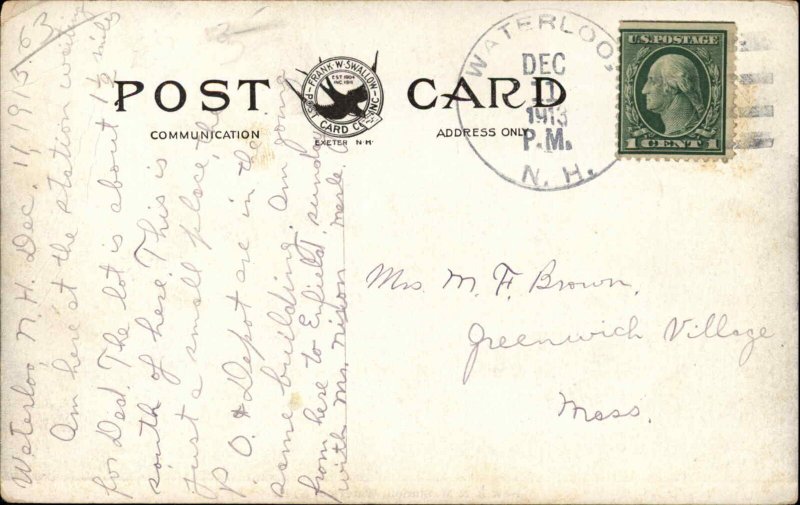 POST CARD
FRANK·W·SWALLOW
EST 1904
INC 1911
POST CARD CO. INC.
EXETER N·H·
COMMUNICATION
ADDRESS ONLY
WATERLOO,
DEC
11
1913
P.M.
N. H.
U.S. POSTAGE
1 CENT 1
Waterloo N. H. Dec. 11, 1913.
Am here at the station waiting
for Dad. The lot is about 1½ miles
south of here. This is
just a small place, the
P. O. & Depot are in the
same building. Am going
from here to Enfield, sunday
with Mr. Merle
Mrs M. F. Brown,
Greenwich Village
Mass.